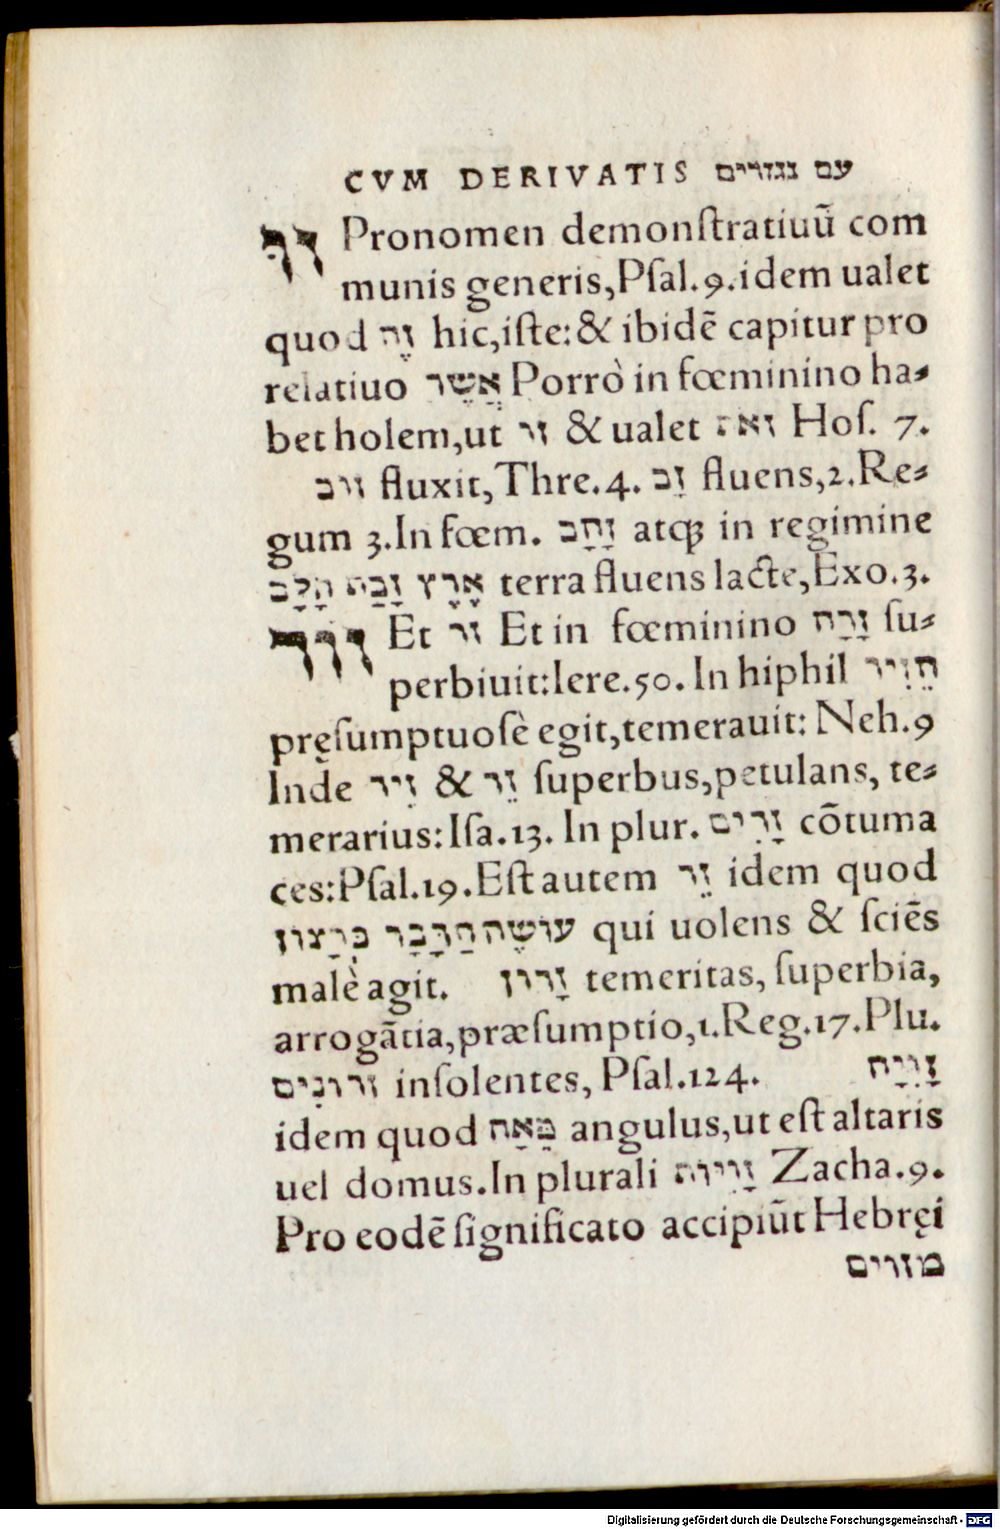 CVM DERIVATIS עם נגזרים
Pronomen demonſtratiuũ com
munis generis,Pſal.9.idem ualet
quod זֶה hic,iſte:& ibidẽ capitur pro
relatiuo אֲשֶׁר Porrò in fœminino ha-
bet holem,ut זו & ualet זאת Hoſ. 7.
זוב fluxit,Thre.4. זָב fluens,2.Re-
gum 3.In fœm. זָבָה atqꝫ in regimine
אֶרֶץ זָבַת הָלָב terra fluens lacte,Exo.3.
Et זר Et in fœminino זָרָה ſu-
perbiuit:Iere.50. In hiphil הֵזִיר
pręſumptuoſè egit,temerauit: Neh.9
Inde זִיר & זֵר ſuperbus,petulans, te-
merarius:Iſa.13. In plur. זָרִים cõtuma
ces:Pſal.19.Eſt autem זֵר idem quod
עושֶׂה הַדָּבָר בְּרָצון qui uolens & ſciẽs
malè agit. זָרון temeritas, ſuperbia,
arrogãtia,præſumptio,1.Reg.17.Plu.
זרונִים inſolentes, Pſal.124. זָוִיָה
idem quod פֵּאָה angulus,ut eſt altaris
uel domus.In plurali זָוִיות Zacha.9.
Pro eodẽ ſignificato accipiũt Hebręi
מזרים
Digitalisierung gefördert durch die Deutsche Forschungsgemeinschaft - DFG